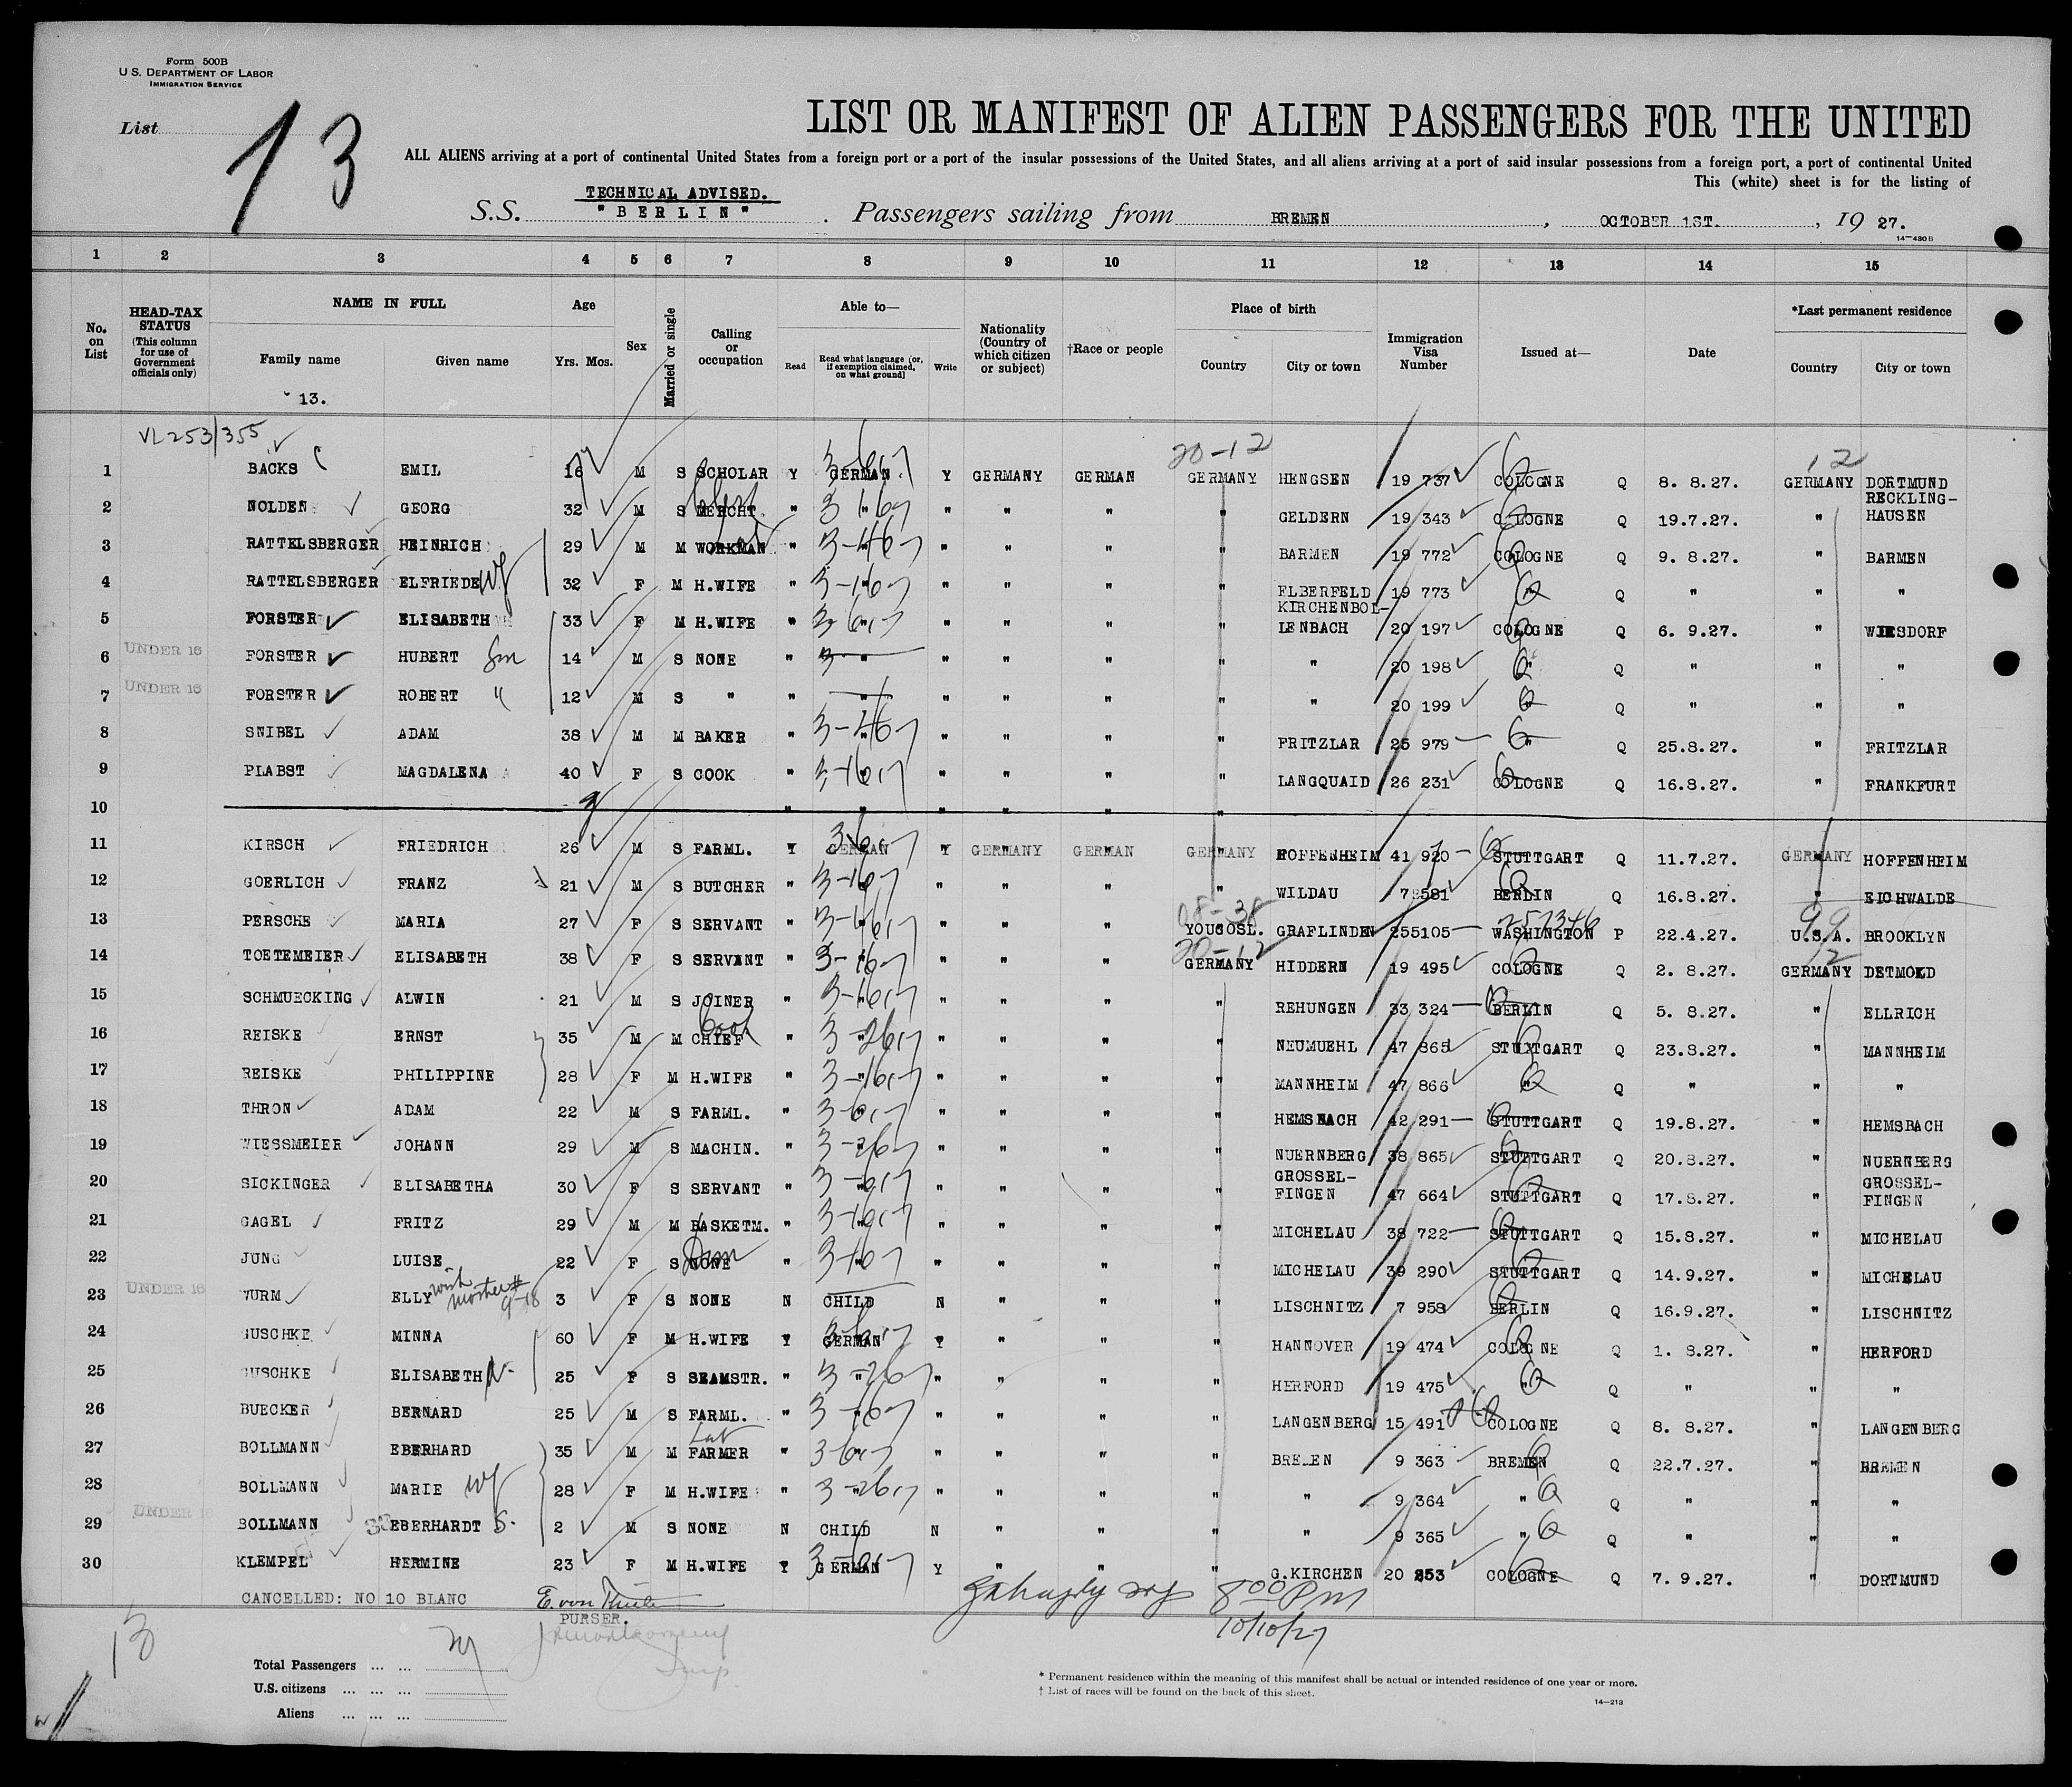 Form 500B
U. S. DEPARTMENT OF LABOR
IMMIGRATION SERVICE
List 13
LIST OR MANIFEST OF ALIEN PASSENGERS FOR THE UNITED
ALL ALIENS arriving at a port of continental United States from a foreign port or a port of the insular possessions of the United States, and all aliens arriving at a port of said insular possessions from a foreign port, a port of continental United
This (white) sheet is for the listing of
TECHNICAL ADVISED.
S.S. "BERLIN". Passengers sailing from BREMEN, OCTOBER 1ST., 19 27.
14—430B
1 2 3 4 5 6 7 8 9 10 11 12 13 14 15
No. on List
HEAD-TAX STATUS (This column for use of Government officials only)
NAME IN FULL
Family name Given name
13.
Age
Yrs. Mos.
Sex
Married or single
Calling or occupation
Able to—
Read
Read what language (or, if exemption claimed, on what ground)
Write
Nationality (Country of which citizen or subject)
†Race or people
Place of birth
Country City or town
Immigration Visa Number
Issued at—
Date
*Last permanent residence
Country City or town
VL253/355 20-12 12
1 BACKS EMIL 16 M S SCHOLAR Y GERMAN Y GERMANY GERMAN GERMANY HENGSEN 19 737 COLOGNE Q 8. 8.27. GERMANY DORTMUND
2 NOLDEN GEORG 32 M S MERCHT. " " " " " " GELDERN 19 343 COLOGNE Q 19.7.27. " RECKLING-HAUSEN
3 RATTELSBERGER HEINRICH 29 M M WORKMAN " " " " " " BARMEN 19 772 COLOGNE Q 9. 8.27. " BARMEN
4 RATTELSBERGER ELFRIEDE wf 32 F M H.WIFE " " " " " " ELBERFELD 19 773 " Q " " "
5 FORSTER ELISABETH 33 F M H.WIFE " " " " " " KIRCHENBOL-LENBACH 20 197 COLOGNE Q 6. 9.27. " WIESDORF
6 UNDER 16 FORSTER HUBERT Son 14 M S NONE " " " " " " " 20 198 " Q " " "
7 UNDER 16 FORSTER ROBERT " 12 M S " " " " " " " " 20 199 " Q " " "
8 SNIBEL ADAM 38 M M BAKER " " " " " " FRITZLAR 25 979 " Q 25.8.27. " FRITZLAR
9 PLABST MAGDALENA 40 F S COOK " " " " " " LANGQUAID 26 231 COLOGNE Q 16.8.27. " FRANKFURT
10 " " " " " "
11 KIRSCH FRIEDRICH 26 M S FARML. Y GERMAN Y GERMANY GERMAN GERMANY HOFFENHEIM 41 920 STUTTGART Q 11.7.27. GERMANY HOFFENHEIM
12 GOERLICH FRANZ 21 M S BUTCHER " " " " " " WILDAU 7 581 BERLIN Q 16.8.27. " EICHWALDE
08-38 257346 99
13 PERSCHE MARIA 27 F S SERVANT " " " " " YOUGOSL. GRAFLINDEN 255105 WASHINGTON P 22.4.27. U.S.A. BROOKLYN
20-12 12
14 TOETEMEIER ELISABETH 38 F S SERVANT " " " " " GERMANY HIDDERN 19 495 COLOGNE Q 2. 8.27. GERMANY DETMOLD
15 SCHMUECKING ALWIN 21 M S JOINER " " " " " " REHUNGEN 33 324 BERLIN Q 5. 8.27. " ELLRICH
Cook
16 REISKE ERNST 35 M M CHIEF " " " " " " NEUMUEHL 47 865 STUTTGART Q 23.8.27. " MANNHEIM
17 REISKE PHILIPPINE 28 F M H.WIFE " " " " " " MANNHEIM 47 866 " Q " " "
18 THRON ADAM 22 M S FARML. " " " " " " HEMSBACH 42 291 STUTTGART Q 19.8.27. " HEMSBACH
19 WIESSMEIER JOHANN 29 M S MACHIN. " " " " " " NUERNBERG 38 865 STUTTGART Q 20.8.27. " NUERNBERG
20 SICKINGER ELISABETHA 30 F S SERVANT " " " " " " GROSSEL-FINGEN 47 664 STUTTGART Q 17.8.27. " GROSSEL-FINGEN
21 GAGEL FRITZ 29 M M BASKETM. " " " " " " MICHELAU 38 722 STUTTGART Q 15.8.27. " MICHELAU
22 JUNG LUISE 22 F S NONE Dom " " " " " " MICHELAU 39 290 STUTTGART Q 14.9.27. " MICHELAU
23 UNDER 16 WURM ELLY with mother # 9-18 3 F S NONE N CHILD N " " " LISCHNITZ 7 958 BERLIN Q 16.9.27. " LISCHNITZ
24 GUSCHKE MINNA 60 F M H.WIFE Y GERMAN Y " " " HANNOVER 19 474 COLOGNE Q 1. 8.27. " HERFORD
25 GUSCHKE ELISABETH 25 F S SEAMSTR. " " " " " " HERFORD 19 475 " Q " " "
26 BUECKER BERNARD 25 M S FARML. " " " " " " LANGENBERG 15 491 COLOGNE Q 8. 8.27. " LANGENBERG
Lab
27 BOLLMANN EBERHARD 35 M M FARMER " " " " " " BREMEN 9 363 BREMEN Q 22.7.27. " BREMEN
28 BOLLMANN MARIE wf 28 F M H.WIFE " " " " " " " 9 364 " Q " " "
29 UNDER 16 BOLLMANN EBERHARDT S. 2 M S NONE N CHILD N " " " " 9 365 " Q " " "
30 KLEMPEL HERMINE 23 F M H.WIFE Y GERMAN Y " " " G.KIRCHEN 20 253 COLOGNE Q 7. 9.27. " DORTMUND
CANCELLED: NO 10 BLANC
PURSER.
8 00 PM
10/10/27
13
Total Passengers ... ...
U.S. citizens ... ... ...
Aliens ... ... ...
* Permanent residence within the meaning of this manifest shall be actual or intended residence of one year or more.
† List of races will be found on the back of this sheet.
14—213